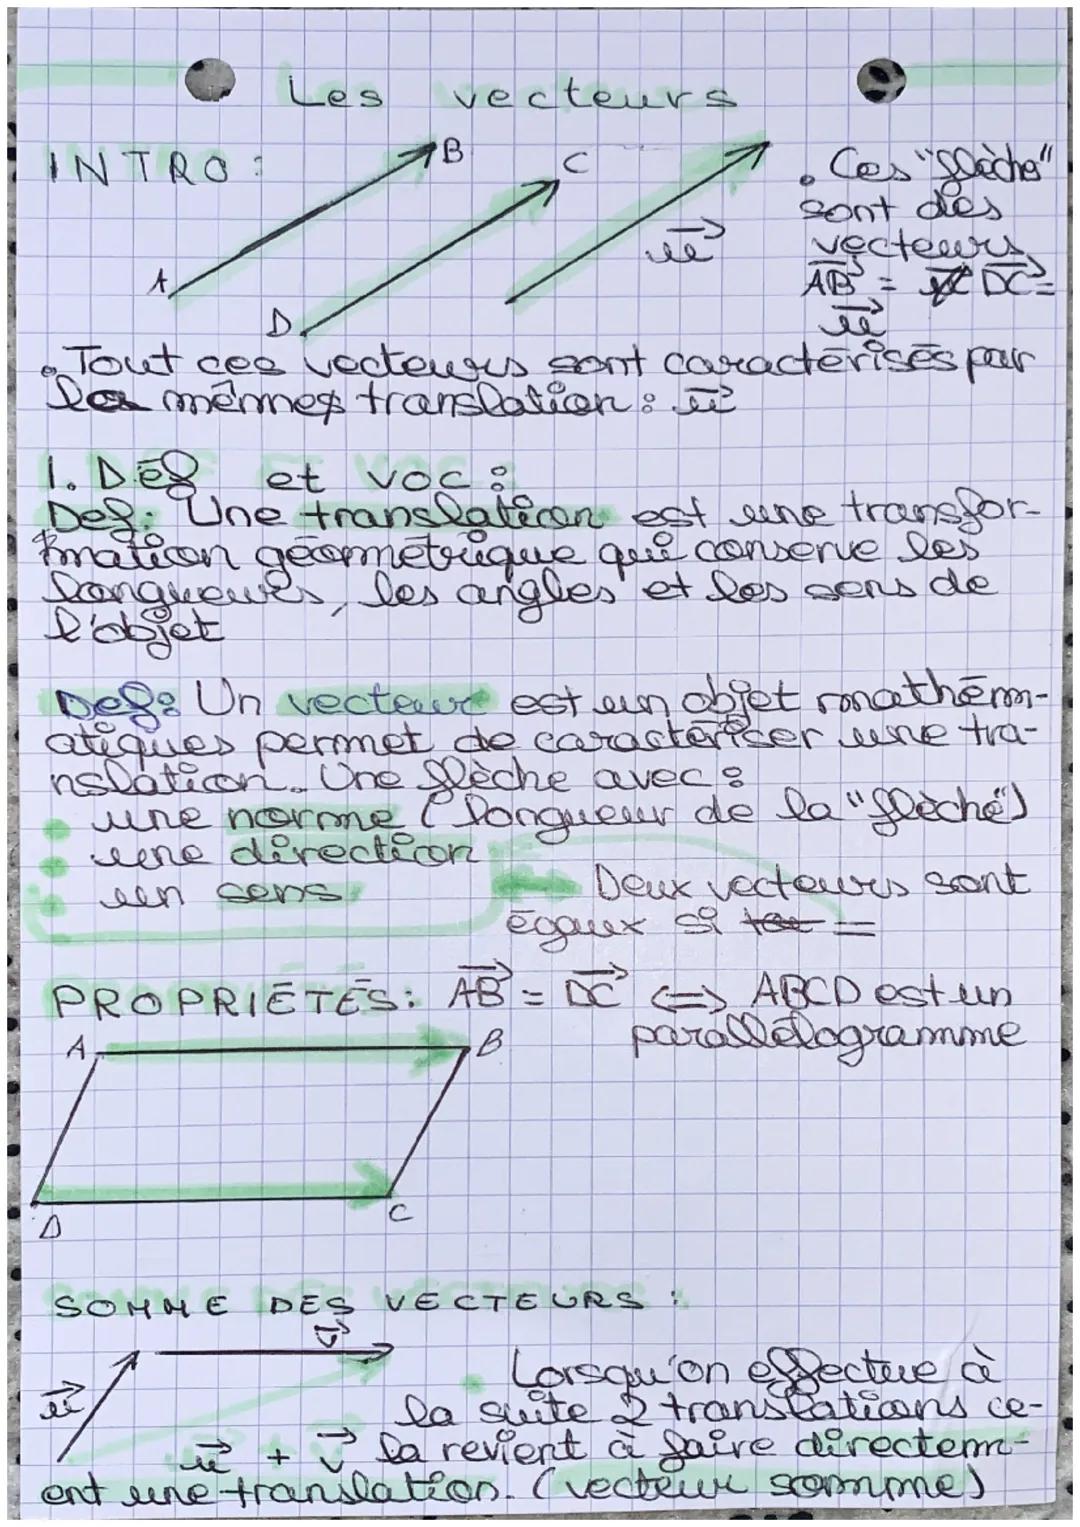 Les vecteurs
INTRO :
B
C
A
D
u⃗
. Ces "flèche"
sont des
vecteurs
AB⃗ = DC⃗ =
u⃗
. Tout ces vecteurs sont caractérisés par
la mêmes translation : u⃗
1. Déf et voc :
Def : Une translation est une transfor-
mation géométrique qui conserve les
longueurs, les angles et les sens de
l'objet
Def : Un vecteur est un objet mathém-
atiques permet de caractériser une tra-
nslation. Une flèche avec :
une norme (longueur de la "flèche")
une direction
un sens
Deux vecteurs sont
égaux si =
PROPRIÉTÉS : AB⃗ = DC⃗ <=> ABCD est un
parallélogramme
A
B
D
C
SOMME DES VECTEURS :
v⃗
u⃗
Lorsqu'on effectue à
la suite 2 translations ce-
u⃗ + v⃗ la revient à faire directem-
ent une translation. (vecteur somme)